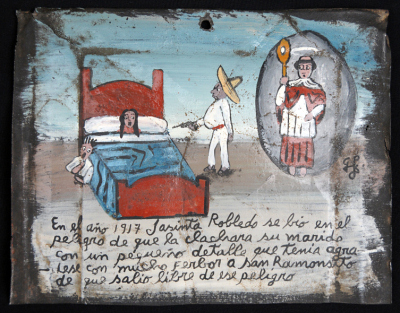 GL
En el año 1917 Jasinta Robledo se bio en el
peligro de que la clachara su marido
con un pequeño detalle que tenia agra
dese con mucho ferbor a san Ramonsito
de que salio libre de ese peligro